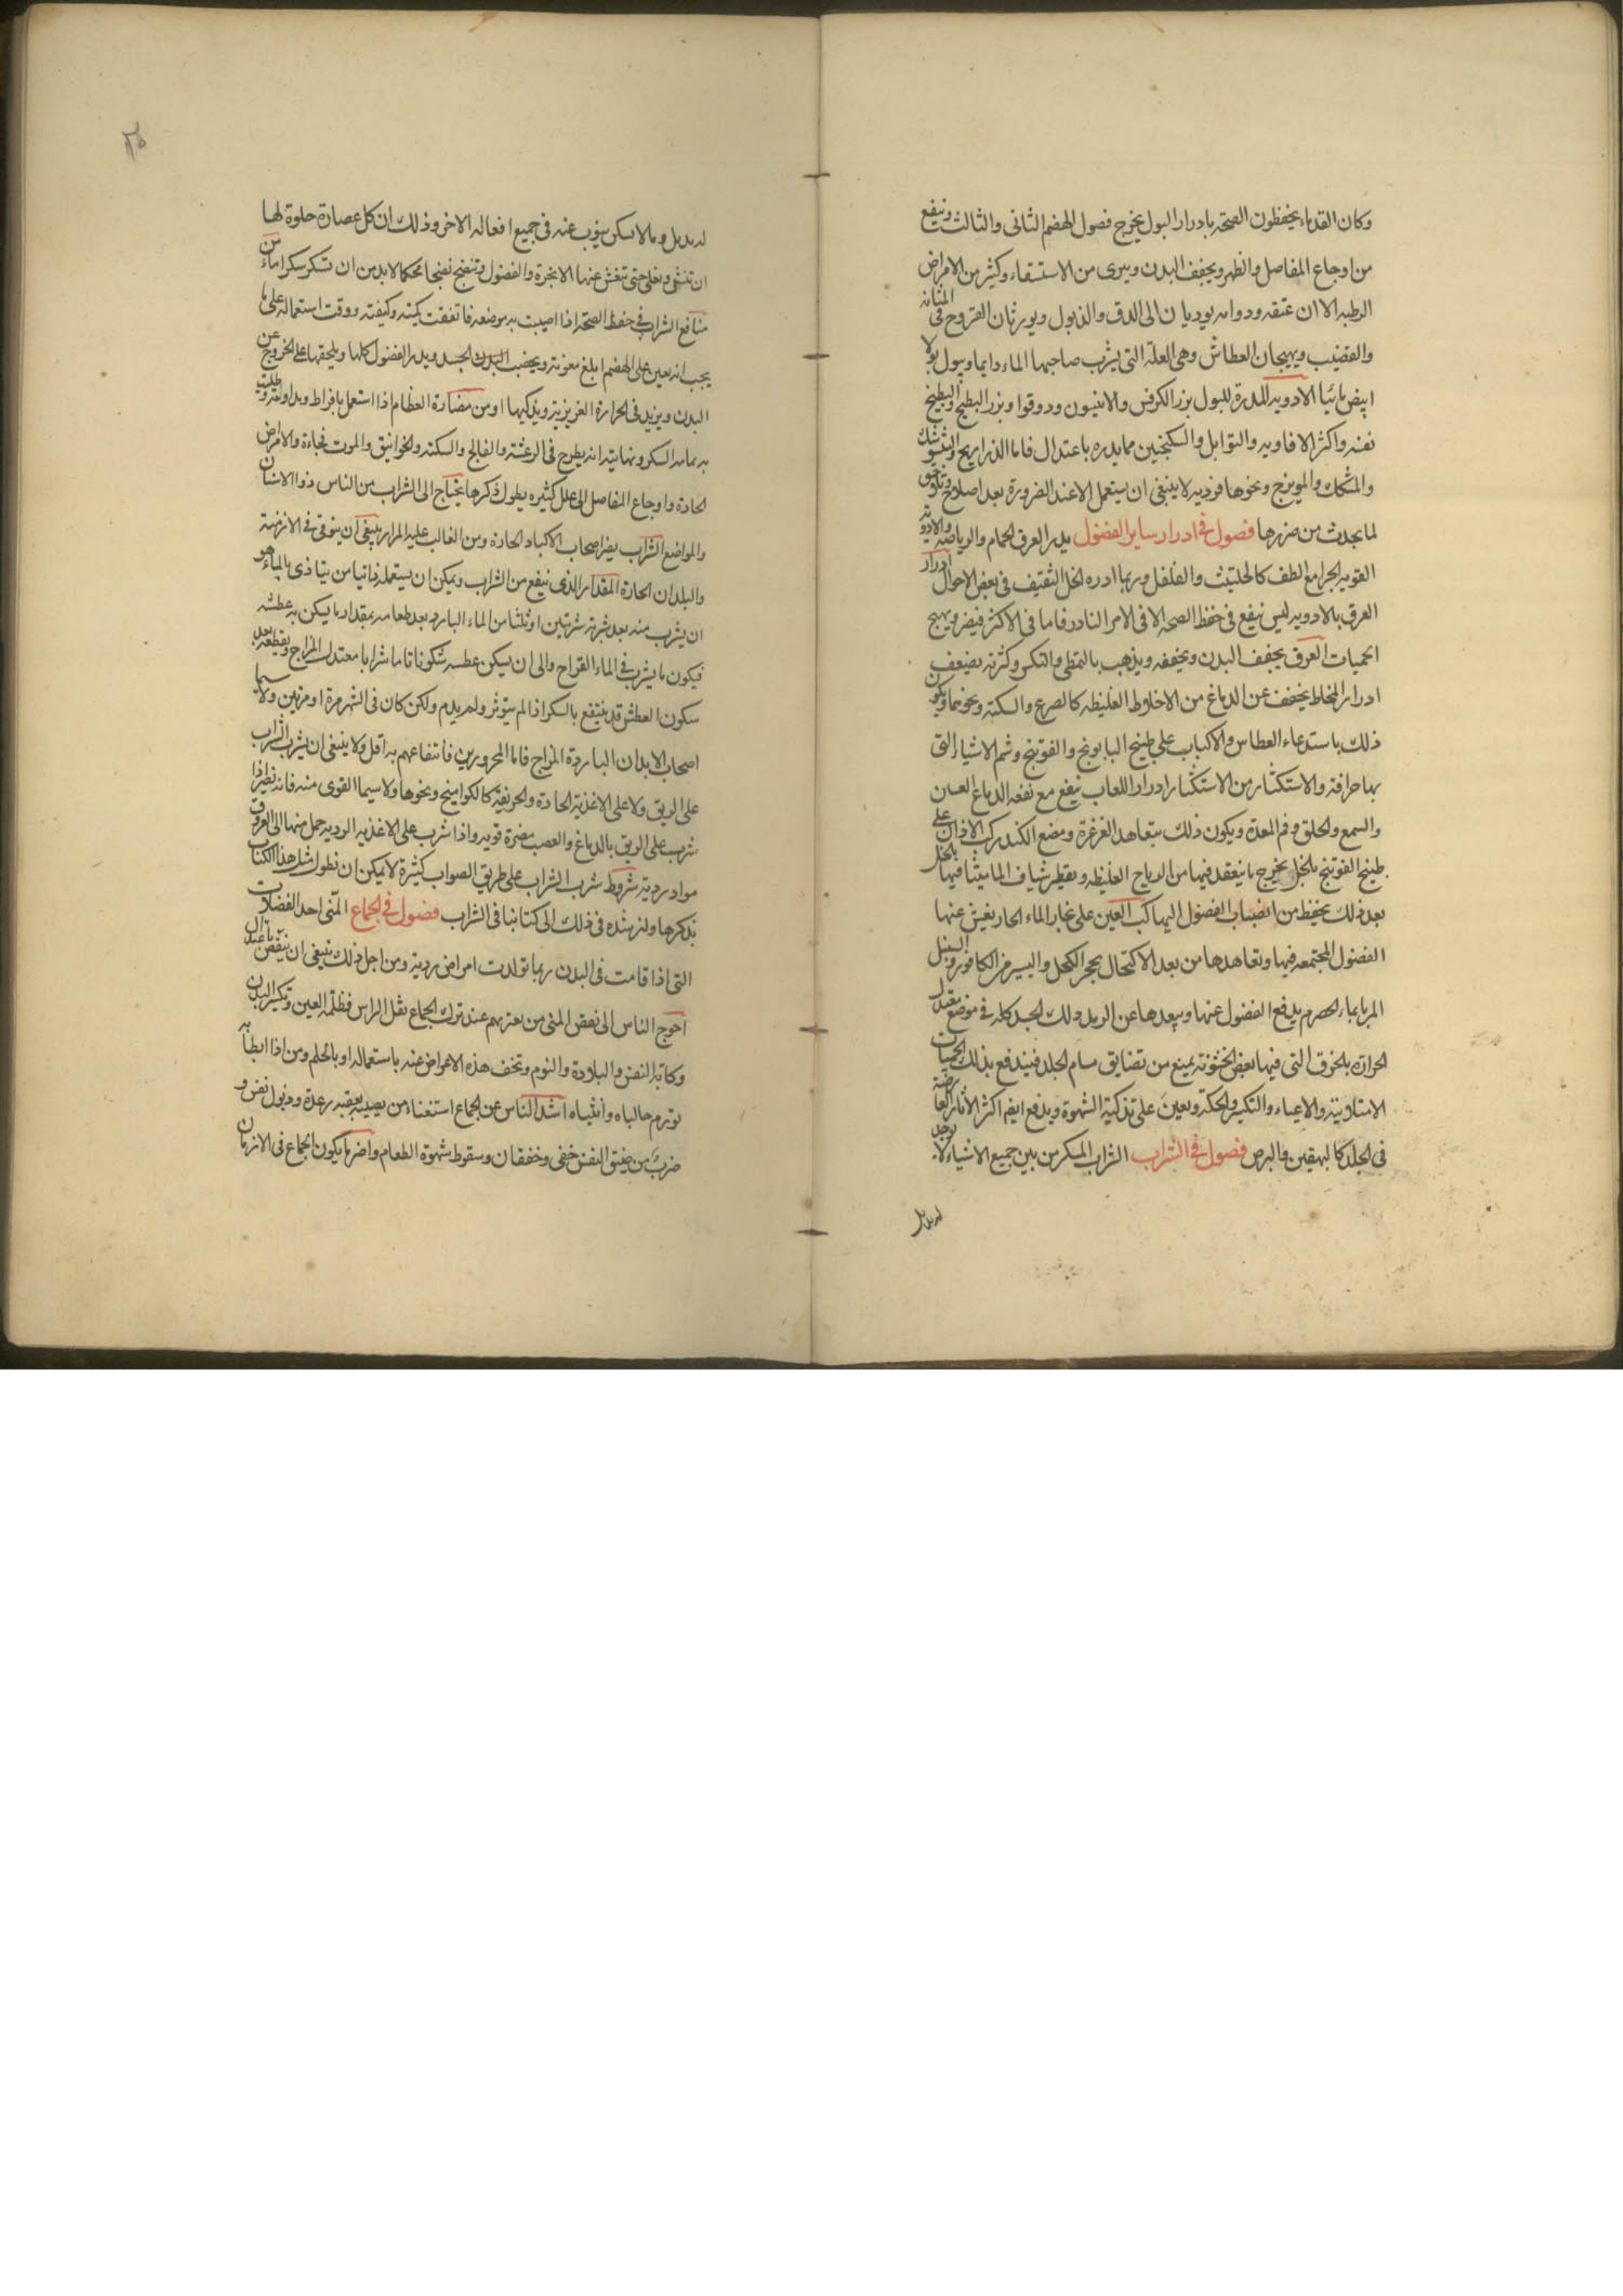 وكان القدماء يحفظون الصحة بادرار البول يخرج فصول الهضم الثانى والثالث وينفع
من اوجاع المفاصل والظهر ويجفف البدن ويبرى من الاستسقاء وكثير من الامراض
الرطبه الا ان عتقه ودوامه يوديان الى الدق والذبول ويورثان القروح فى المثانه
والقضيب ويهيجان العطاش وهى العلة التى يشرب صاحبها الماء دايما ويبول بولا
ابيض مائيا الادويه المدرة للبول بزر الكرفس والانيسون ودوقوا وبزر البطيخ والبطيخ
نفسه واكثر الافاويه والتوابل والسكنجبين مما يدره باعتدال فاما الذراريح
والمشكك والمويزج ونحوها فرديه لا ينبغى ان يستعمل الا عند الضرورة بعد اصلاح وتكون
لما يحدث من ضررها فصول فى ادرار ساير الفضول يدر العرق الحمام والرياضه والادوية
القويه الجرامع الطف كالحلتيث والفلفل وربما ادره الخل الثقيف فى بعض الاحوال ادرار
العرق بالادويه ليس ينفع فى حفظ الصحه الا فى الامر النادر فاما فى الاكثر فيضر ويهيج
الحميات العرق يجفف البدن ويخففه ويذهب بالتمطى والتكسر وكثرته يضعف
ادرار المخاط يخفف عن الدماغ من الاخلاط الغليظه كالصرع والسكتة ونحوهما ويكون
ذلك باستدعاء العطاس والاكباب على طبيخ البابونج والفوتنج وشم الاشياء التى
بها حرافة والاستكثار من الاستكثار ادرار اللعاب ينفع مع نفعه الدماغ العين
والسمع والحلق وفم المعدة ويكون ذلك بتعاهد الغرغرة ومضغ الكندر كب الاذان على
طبيخ الفوتنج بالخل يخرج ما ينعقد فيها من الرياح الغليظه وتقطير شياف الماميثا فيها بالخل
بعد ذلك يحفظ من انصباب الفضول اليها كب العين على بخار الماء الحار يفش عنها
الفضول المجتمعه فيها وتعاهدها من بعد الاكتحال بحجر الكحل واليسير من الكافور والسنبل
المربا بماء الحصرم يدفع الفضول عنها ويبعدها عن الرمد دلك الجسد كله فى موضع معتدل
الحرارة بالخرق التى فيها بعض الخشونة يمنع من تضايق مسام الجلد فيندفع بذلك الحميات
الامتلائية والاعياء والتكسر والحكة ويعين على تذكية الشهوة ويدفع ايضا اكثر الاثار العارضة
فى الجلد كالبهقين والبرص فصول فى الشراب الشراب المسكر من بين جميع الاشياء لا يوجد
له بديل
له بديل وما لا يمكن ينوب عنه فى جميع افعاله الاخر وذلك ان كل عصارة حلوة لها
ان تنش وتغلى حتى تفش عنها الابخرة والفضول وتنضج نضجا محكما لا بد من ان تسكر سكرا ما من
منافع الشراب فى حفظ الصحة اذا اصيبت به موضعه فاتفقت كميته وكيفيته ووقت استعماله على ما
يجب انه يعين على الهضم ابلغ معونة ويخصب البدن الجسد ويدر الفضول كلها ويلحقها على الخروج عن
البدن ويزيد فى الحرارة الغريزية ويذكيها ومن مضارة العظام اذا استعمل بافراط ومداومة
به مداومة السكر ونهايته انه يطرح فى الرعشة والفالج والسكته والخوانيق والموت فجاءة والامراض
الحادة واوجاع المفاصل الى علل كثيره يطول ذكرها يحتاج الى الشراب من الناس ذوا الاسنان
والمواضع الشراب يضر اصحاب الاكباد الحارة ومن الغالب عليه المرار ينبغى ان يتوقى فى الازمنة
والبلدان الحارة المقدار الذى ينفع من الشراب ويمكن ان يستعمله دائما من يتاذى بالماء هو
ان يشرب منه بعد شربة شربتين او ثلثا من الماء البارد بعد طعامه بمقدار ما يسكن به عطشه
فيكون ما يشرب فى الماء القراح والى ان يسكن عطشه سكونا تاما شرابا معتدل المزاج ويقطعه بعد
سكون العطش قد ينتفع بالسكر اذا لم يتوثر ولم يدم ولكن كان فى الشهر مرة او مرتين ولا سيما
اصحاب الابدان الباردة المزاج فاما المحرورين فانتفاعهم به اقل ولا ينبغى ان يشرب الشراب
على الريق ولا على الاغذية الحادة والحريفة كالكواميخ ونحوها ولا سيما القوى منه فانه يضر اذا
شرب على الريق بالدماغ والعصب مضرة قويه واذا شرب على الاغذيه الرديه حمل منها الى العروق
مواد ردية شروط شرب الشراب على طريق الصواب كثيرة لا يمكن ان نطول مثل هذا الكتاب
بذكرها ولنرشده فى ذلك الى كتابنا فى الشراب فصول فى الجماع المنى احد الفضلات
التى اذا قامت فى البدن ربما تولدت امراض ردية ومن اجل ذلك ينبغى ان ينقص
احوج الناس الى نفض المنى من يعتريهم عند ترك الجماع ثقل الراس وظلمة العين وتكسر البدن
وكابة النفس والبلادة والنوم وتخف هذه الاعراض عنه باستعماله او بالحلم ومن اذا ابطا به
تورم حالباه وانثياه اشد الناس عن الجماع استغناء من يصيبه بعقبه رعدة وذبول نفس و
ضرب من ضيق النفس خفى وخفقان وسقوط شهوة الطعام واضر ما يكون الجماع فى الازمان